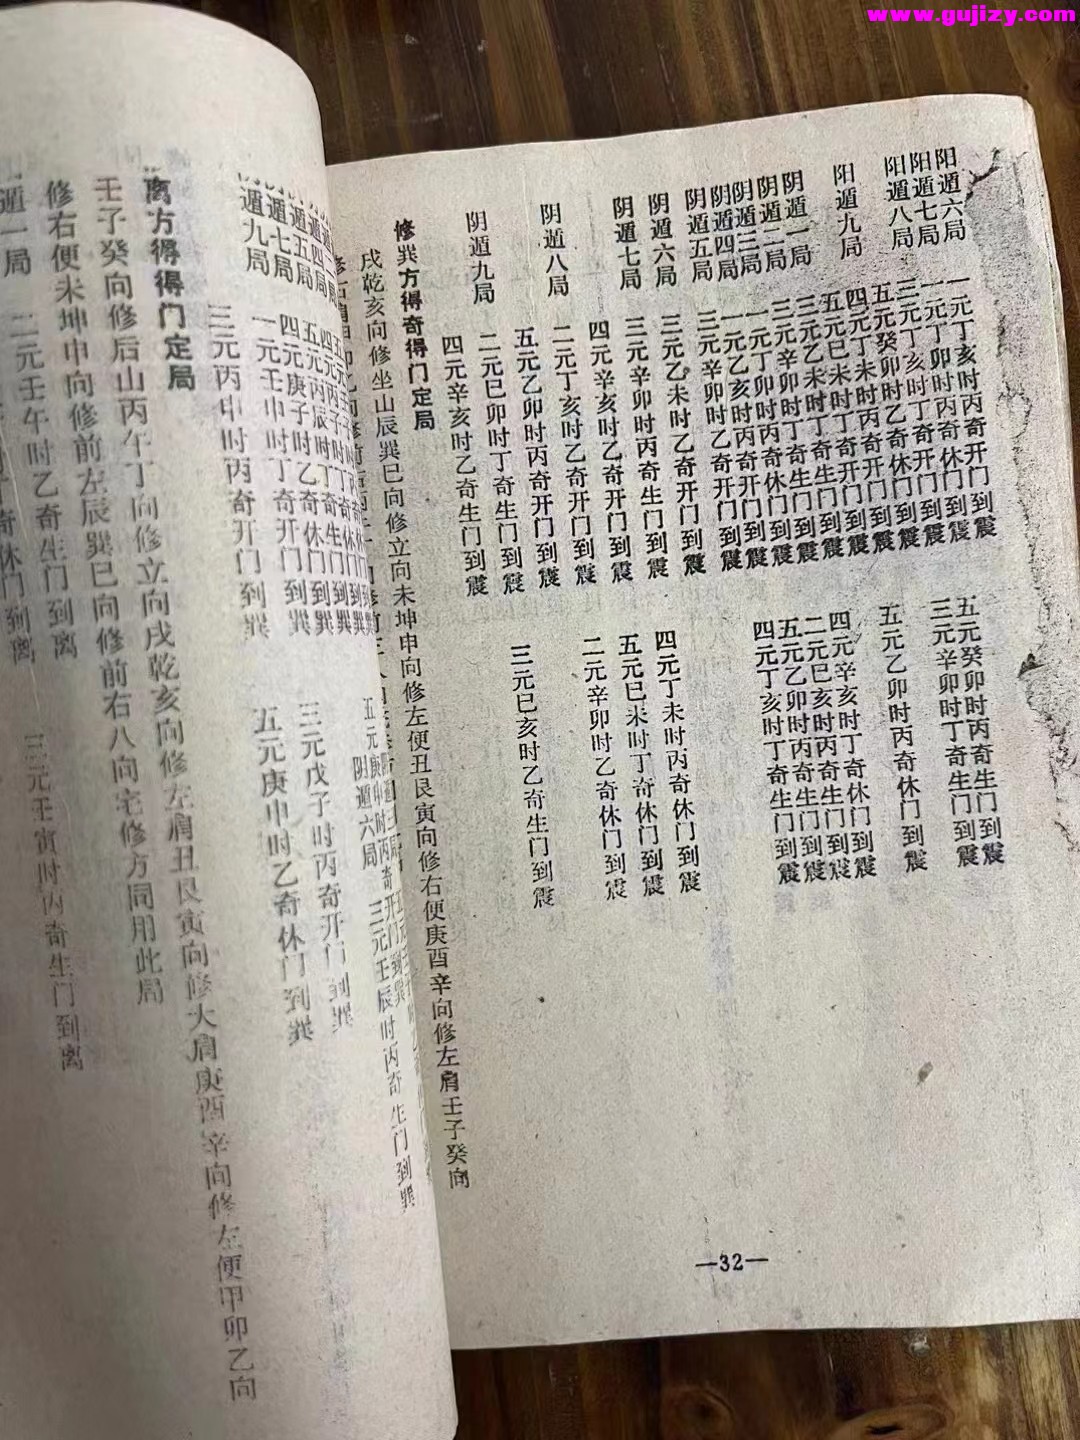 阳遁六局 一元丁亥时丙奇开门到震 五元癸卯时丙奇生门到震
阳遁七局 一元丁卯时丙奇休门到震 三元辛卯时丁奇生门到震
阳遁八局 三元丁亥时丁奇开门到震
五元癸卯时乙奇休门到震 五元乙卯时丙奇休门到震
阳遁九局 四元丁未时丙奇开门到震
五元巳未时丁奇生门到震 四元辛亥时丁奇休门到震
阴遁一局 三元乙未时丁奇生门到震 二元巳亥时丙奇生门到震
阴遁二局 三元辛卯时丁奇休门到震 五元乙卯时丙奇生门到震
阴遁三局 一元丁卯时丙奇休门到震 四元丁亥时丁奇生门到震
阴遁四局 一元乙亥时丙奇开门到震
阴遁五局 三元辛卯时乙奇开门到震
阴遁六局 三元乙未时乙奇开门到震 四元丁未时丙奇休门到震
阴遁七局 三元辛卯时丙奇生门到震 五元巳未时丁奇休门到震
四元辛亥时乙奇开门到震 二元辛卯时乙奇休门到震
阴遁八局 二元丁亥时乙奇开门到震
五元乙卯时丙奇开门到震 三元巳亥时乙奇生门到震
二元巳卯时丁奇生门到震
阴遁九局 四元辛亥时乙奇生门到震
修巽方得奇得门定局
戌乾亥向修坐山辰巽巳向修立向未坤申向修左便丑艮寅向修右便庚酉辛向修左肩壬子癸向
—32—
阴遁六局 三元壬辰时丙奇生门到巽
四元丙子时丁奇生门到巽
五元丙辰时丁奇生门到巽 三元戊子时丙奇开门到巽
遁五局 四元庚子时乙奇休门到巽
遁七局 一元壬申时丁奇开门到巽 五元庚申时乙奇休门到巽
遁九局 三元丙申时丙奇开门到巽
离方得得门定局
壬子癸向修后山丙午丁向修立向戌乾亥向修左肩丑艮寅向修大肩庚酉辛向修左便甲卯乙向
修右便未坤申向修前左辰巽巳向修前右八向宅修方同用此局
遁一局 二元壬午时乙奇生门到离 三元壬寅时丙奇生门到离
奇休门到离
www.gujizy.com